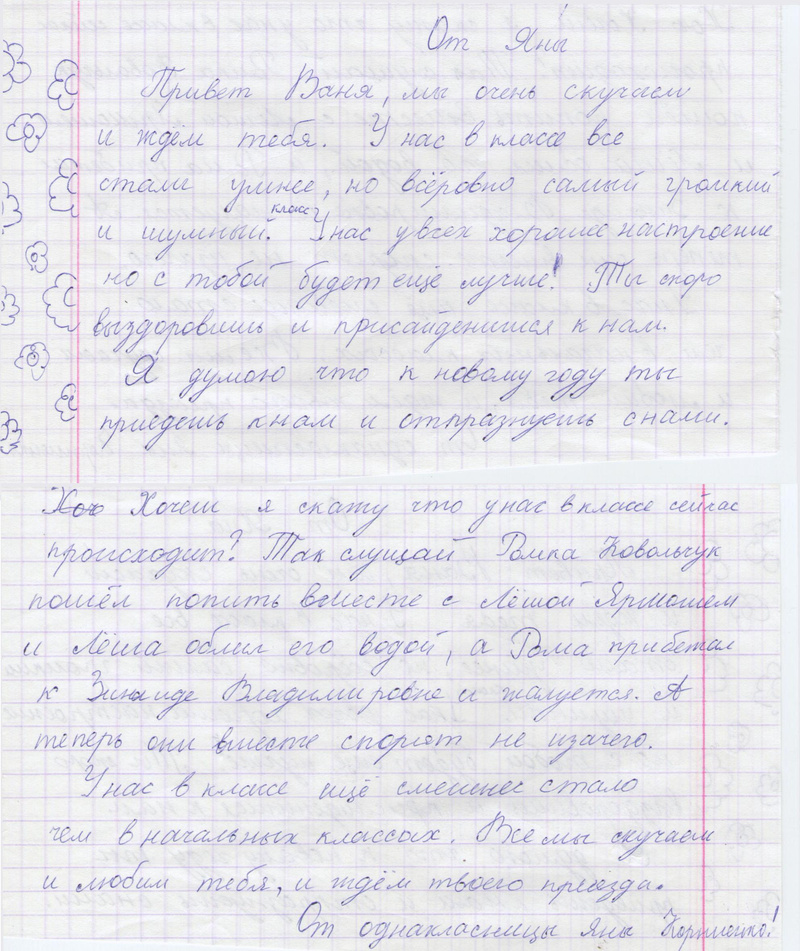 От Яны!
Привет Ваня, мы очень скучаем
и ждём тебя. У нас в классе все
стали умнее, но всёровно самый громкий
и шумный класс. У нас у всех хорошее настроение
но с тобой будет ещё лучше! Ты скоро
выздоровишь и присайденишся к нам.
Я думою что к новому году ты
приедешь к нам и отпразнуешь с нами.
Хоч Хочеш я скажу что у нас в классе сейчас
происходит? Так слущай Ромка Ковольчук
пошёл попить вместе с Лёшой Ярмошем
и Лёша облил его водой, а Рома прибежал
к Зинаиде Владимировне и жалуется. А
теперь они вместе спорят не изачего.
У нас в классе ещё смешнее стало
чем в начальных классах. Все мы скучаем
и любим тебя, и ждём твоего преезда.
От однакласницы Яны